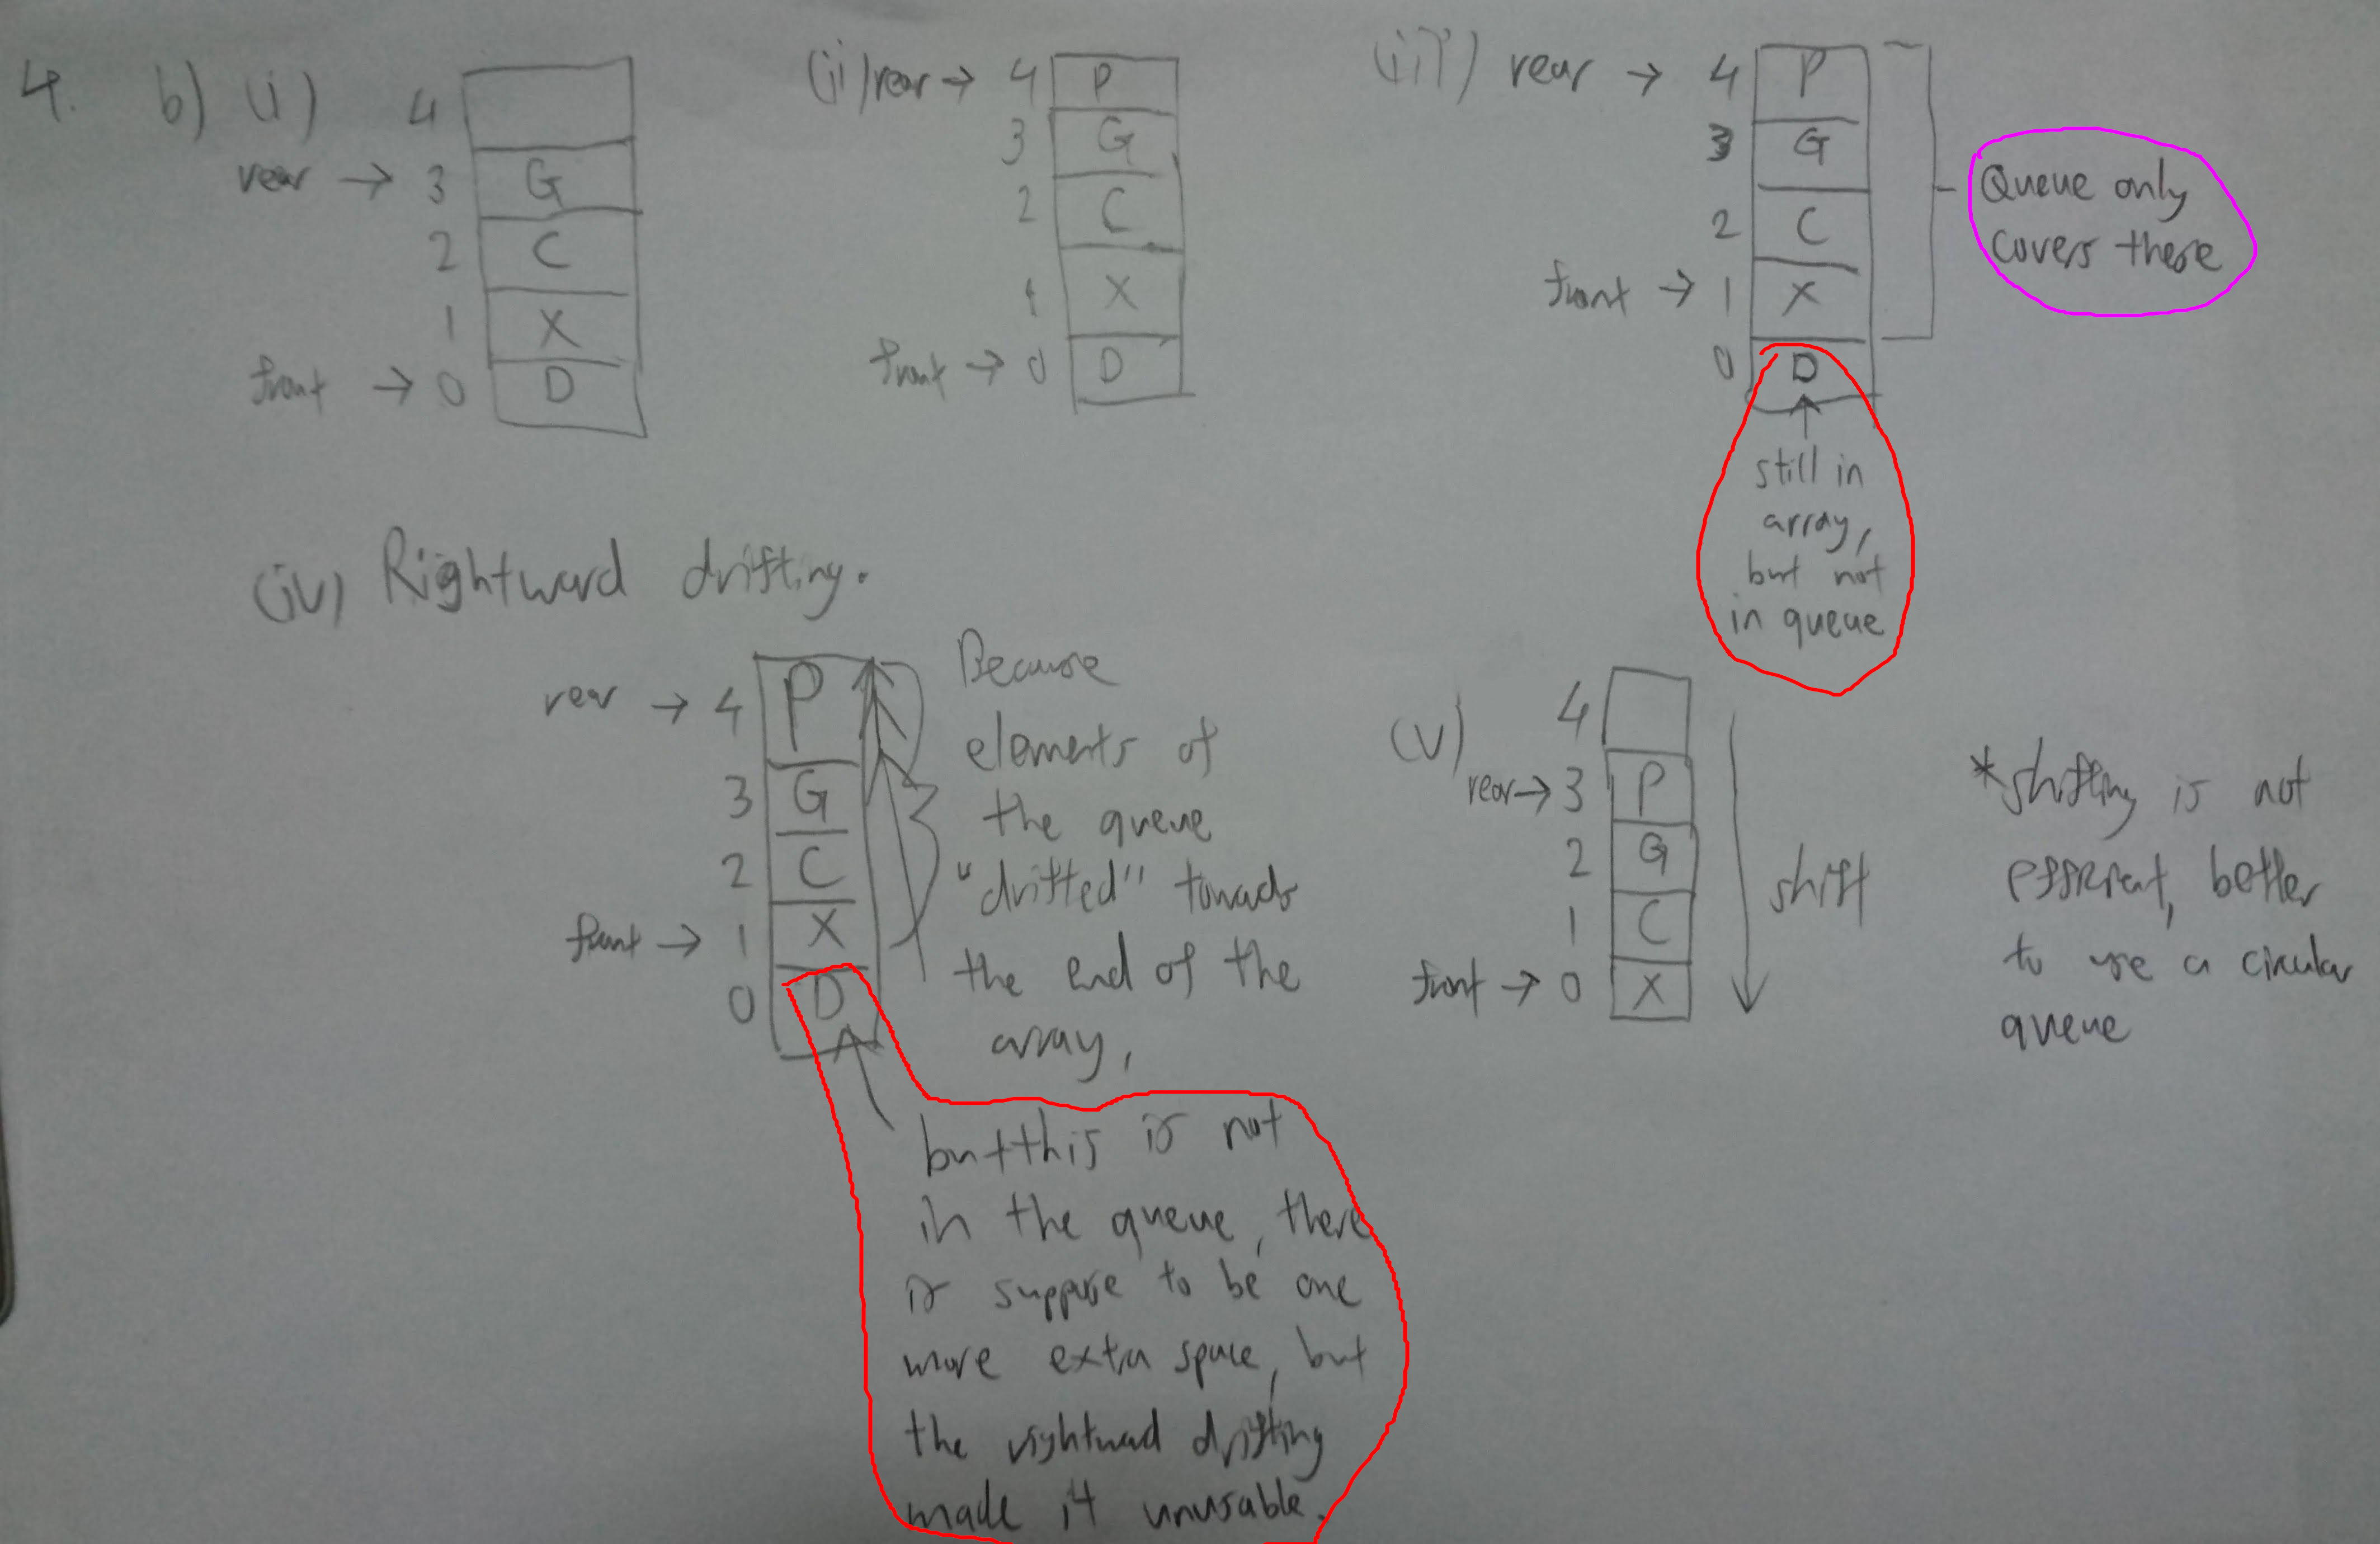 4. b) (i)
4
rear → 3 G
2 C
1 X
front → 0 D
(ii) rear → 4 P
3 G
2 C
1 X
front → 0 D
(iii) rear → 4 P
3 G
2 C
front → 1 X
0 D
Queue only
covers these
still in
array,
but not
in queue
(iv) Rightward drifting.
rear → 4 P
3 G
2 C
front → 1 X
0 D
Because
elements of
the queue
"drifted" towards
the end of the
array,
but this is not
in the queue, there
is suppose to be one
more extra space, but
the rightward drifting
made it unusable.
(v)
4
rear → 3 P
2 G
1 C
front → 0 X
shift
*shifting is not
efficient, better
to use a circular
queue